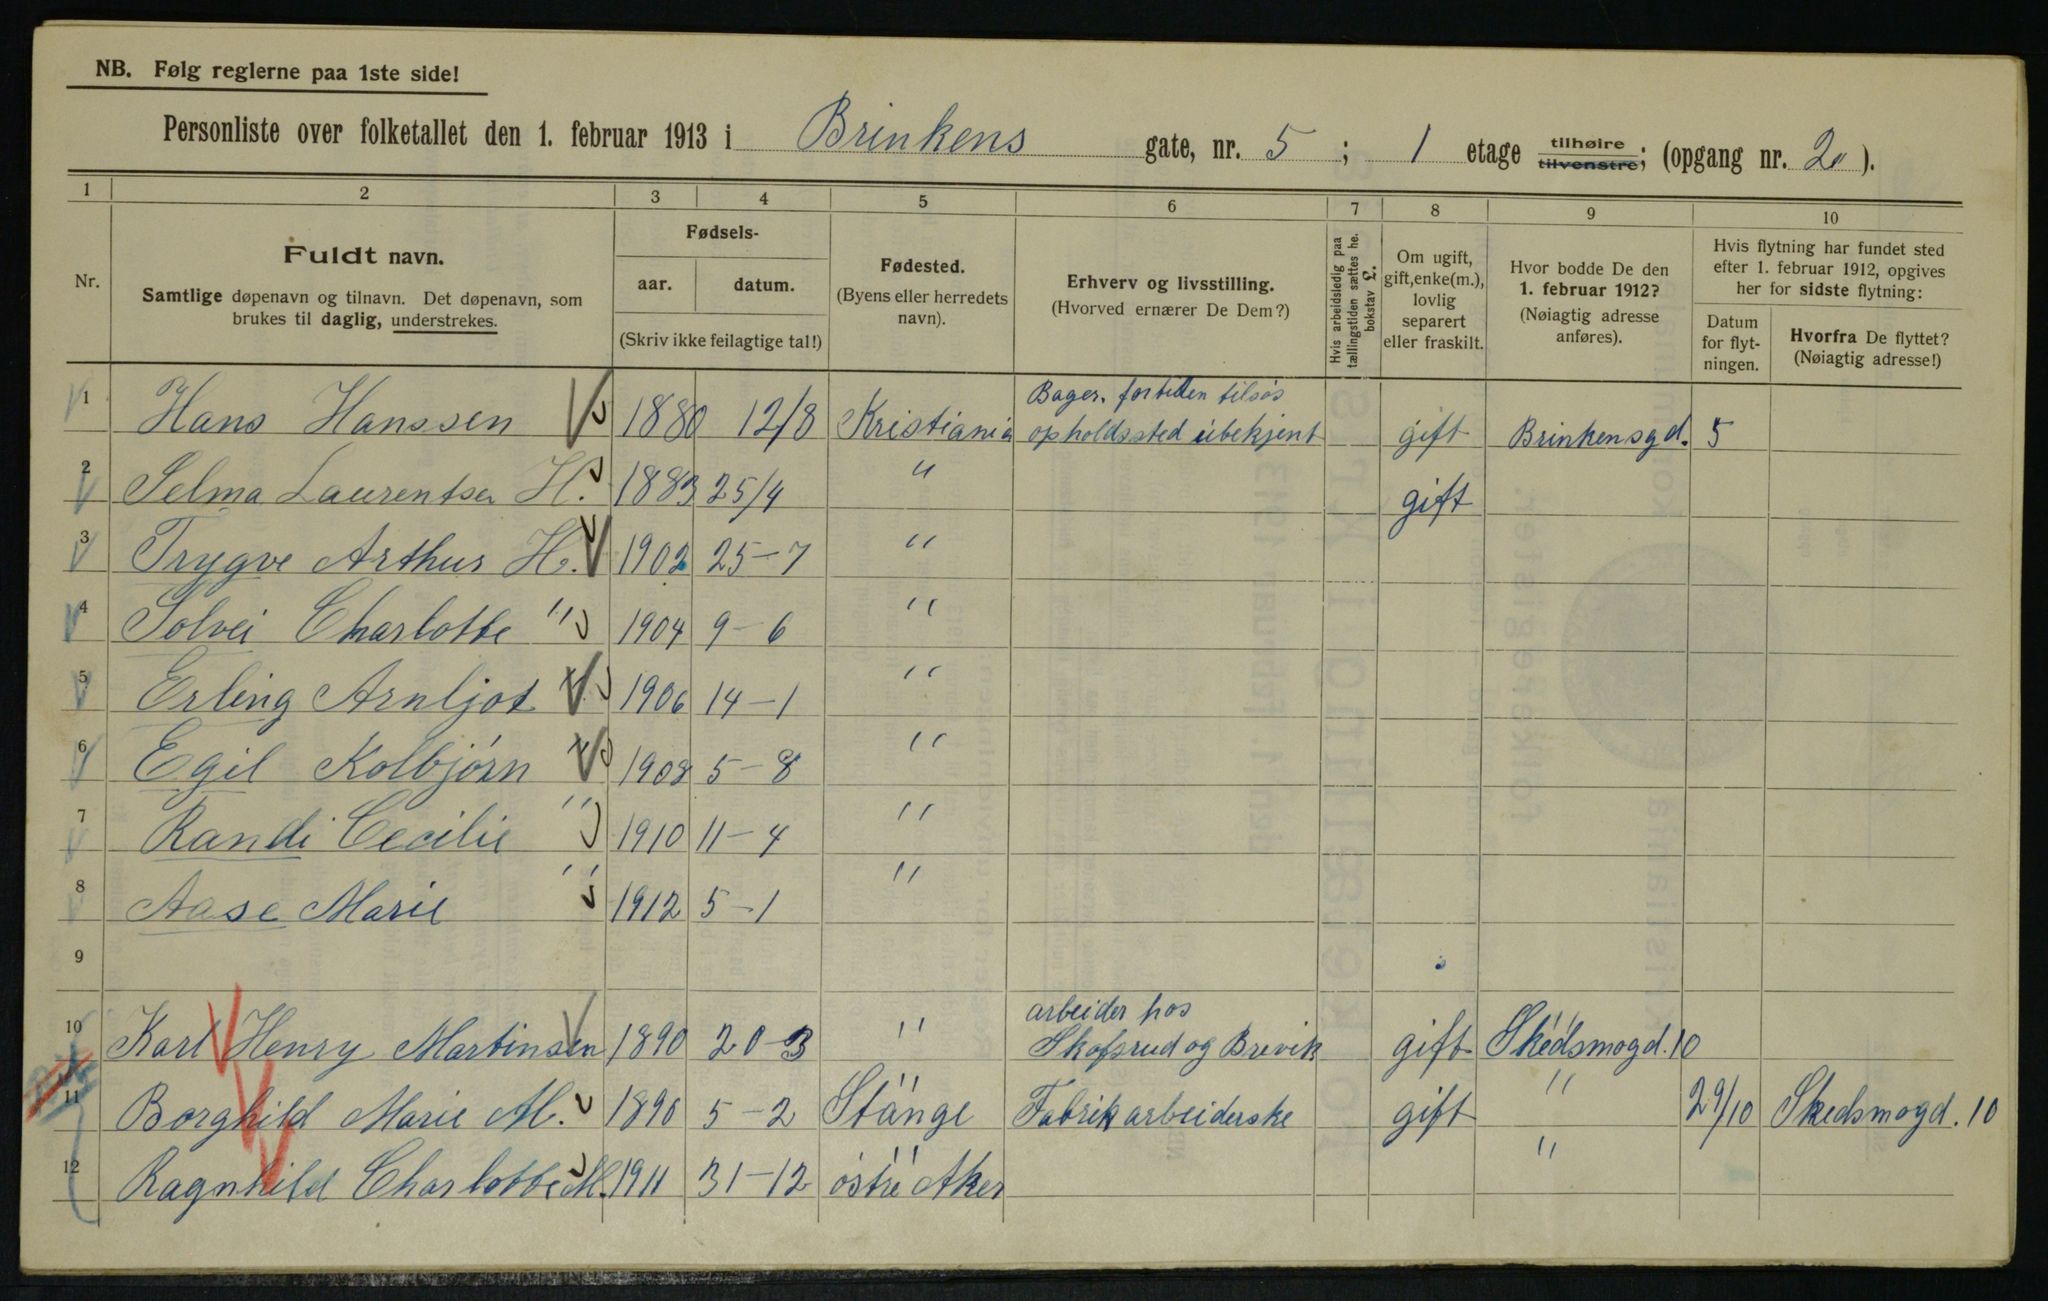 NB. Følg reglerne paa 1ste side!
Personliste over folketallet den 1. februar 1913 i Brinkens gate, nr. 5 ; 1 etage tilhøire tilvenstre; (opgang nr. 2 ).
1 2 3 4 5 6 7 8 9 10
Nr.
Fuldt navn.
Samtlige døpenavn og tilnavn. Det døpenavn, som
brukes til daglig, understrekes.
Fødsels-
aar. datum.
(Skriv ikke feilagtige tal!)
Fødested.
(Byens eller herredets
navn).
Erhverv og livsstilling.
(Hvorved ernærer De Dem?)
Hvis arbeidsledig paa
tællingstiden sættes he.
bokstav £.
Om ugift,
gift, enke(m.),
lovlig
separert
eller fraskilt.
Hvor bodde De den
1. februar 1912?
(Nøiagtig adresse
anføres).
Hvis flytning har fundet sted
efter 1. februar 1912, opgives
her for sidste flytning:
Datum
for flyt-
ningen.
Hvorfra De flyttet?
(Nøiagtig adresse!)
Bager. fortiden tilsøs
1 Hans Hanssen 1880 12/8 Kristiania opholdssted ubekjent gift Brinkensgd. 5
2 Selma Laurentse H. 1883 25/4 " gift
3 Trygve Arthur H. 1902 25-7 "
4 Solvei Charlotte " 1904 9-6 "
5 Erling Arnljot " 1906 14-1 "
6 Egil Kolbjørn " 1908 5-8 "
7 Randi Cecilie " 1910 11-4 "
8 Aase Marie " 1912 5-1 "
9
arbeider hos
10 Karl Henry Martinsen 1890 20-3 " Skofsrud og Brevik gift Skedsmogd. 10
11 Borghild Marie M. 1890 5-2 Stange Fabrikarbeiderske gift " 29/10 Skedsmogd. 10
12 Ragnhild Charlotte M. 1911 31-12 østre Aker "